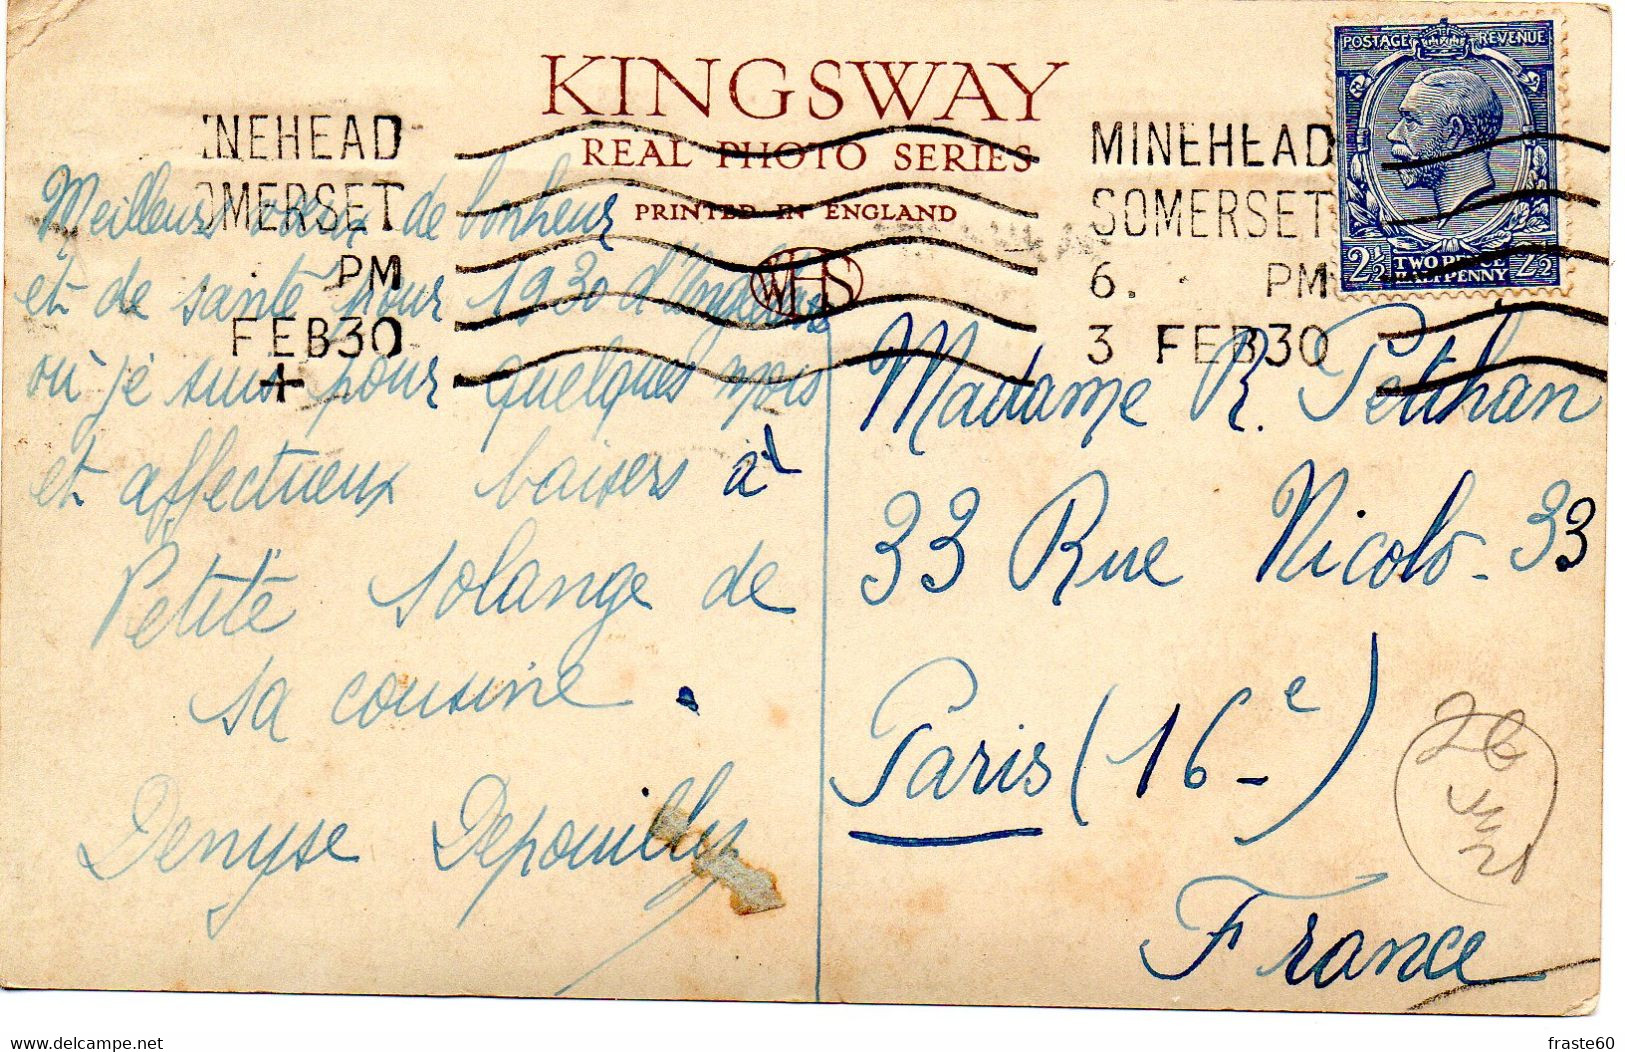 KINGSWAY
REAL PHOTO SERIES
PRINTED IN ENGLAND
WHS
POSTAGE REVENUE
2½ TWO PENCE HALFPENNY 2½
INEHEAD
OMERSET
PM
FEB30
+
MINEHEAD
SOMERSET
6. PM
3 FEB30
Meilleurs voeux de bonheur
et de santé pour 1930 d'Angleterre
où je suis pour quelques mois
et affectueux baisers à
Petite Solange de
sa cousine.
Denyse Depouilly
Madame R. Petithan
33 Rue Nicolo - 33
Paris (16e)
France
fraste60
www.delcampe.net